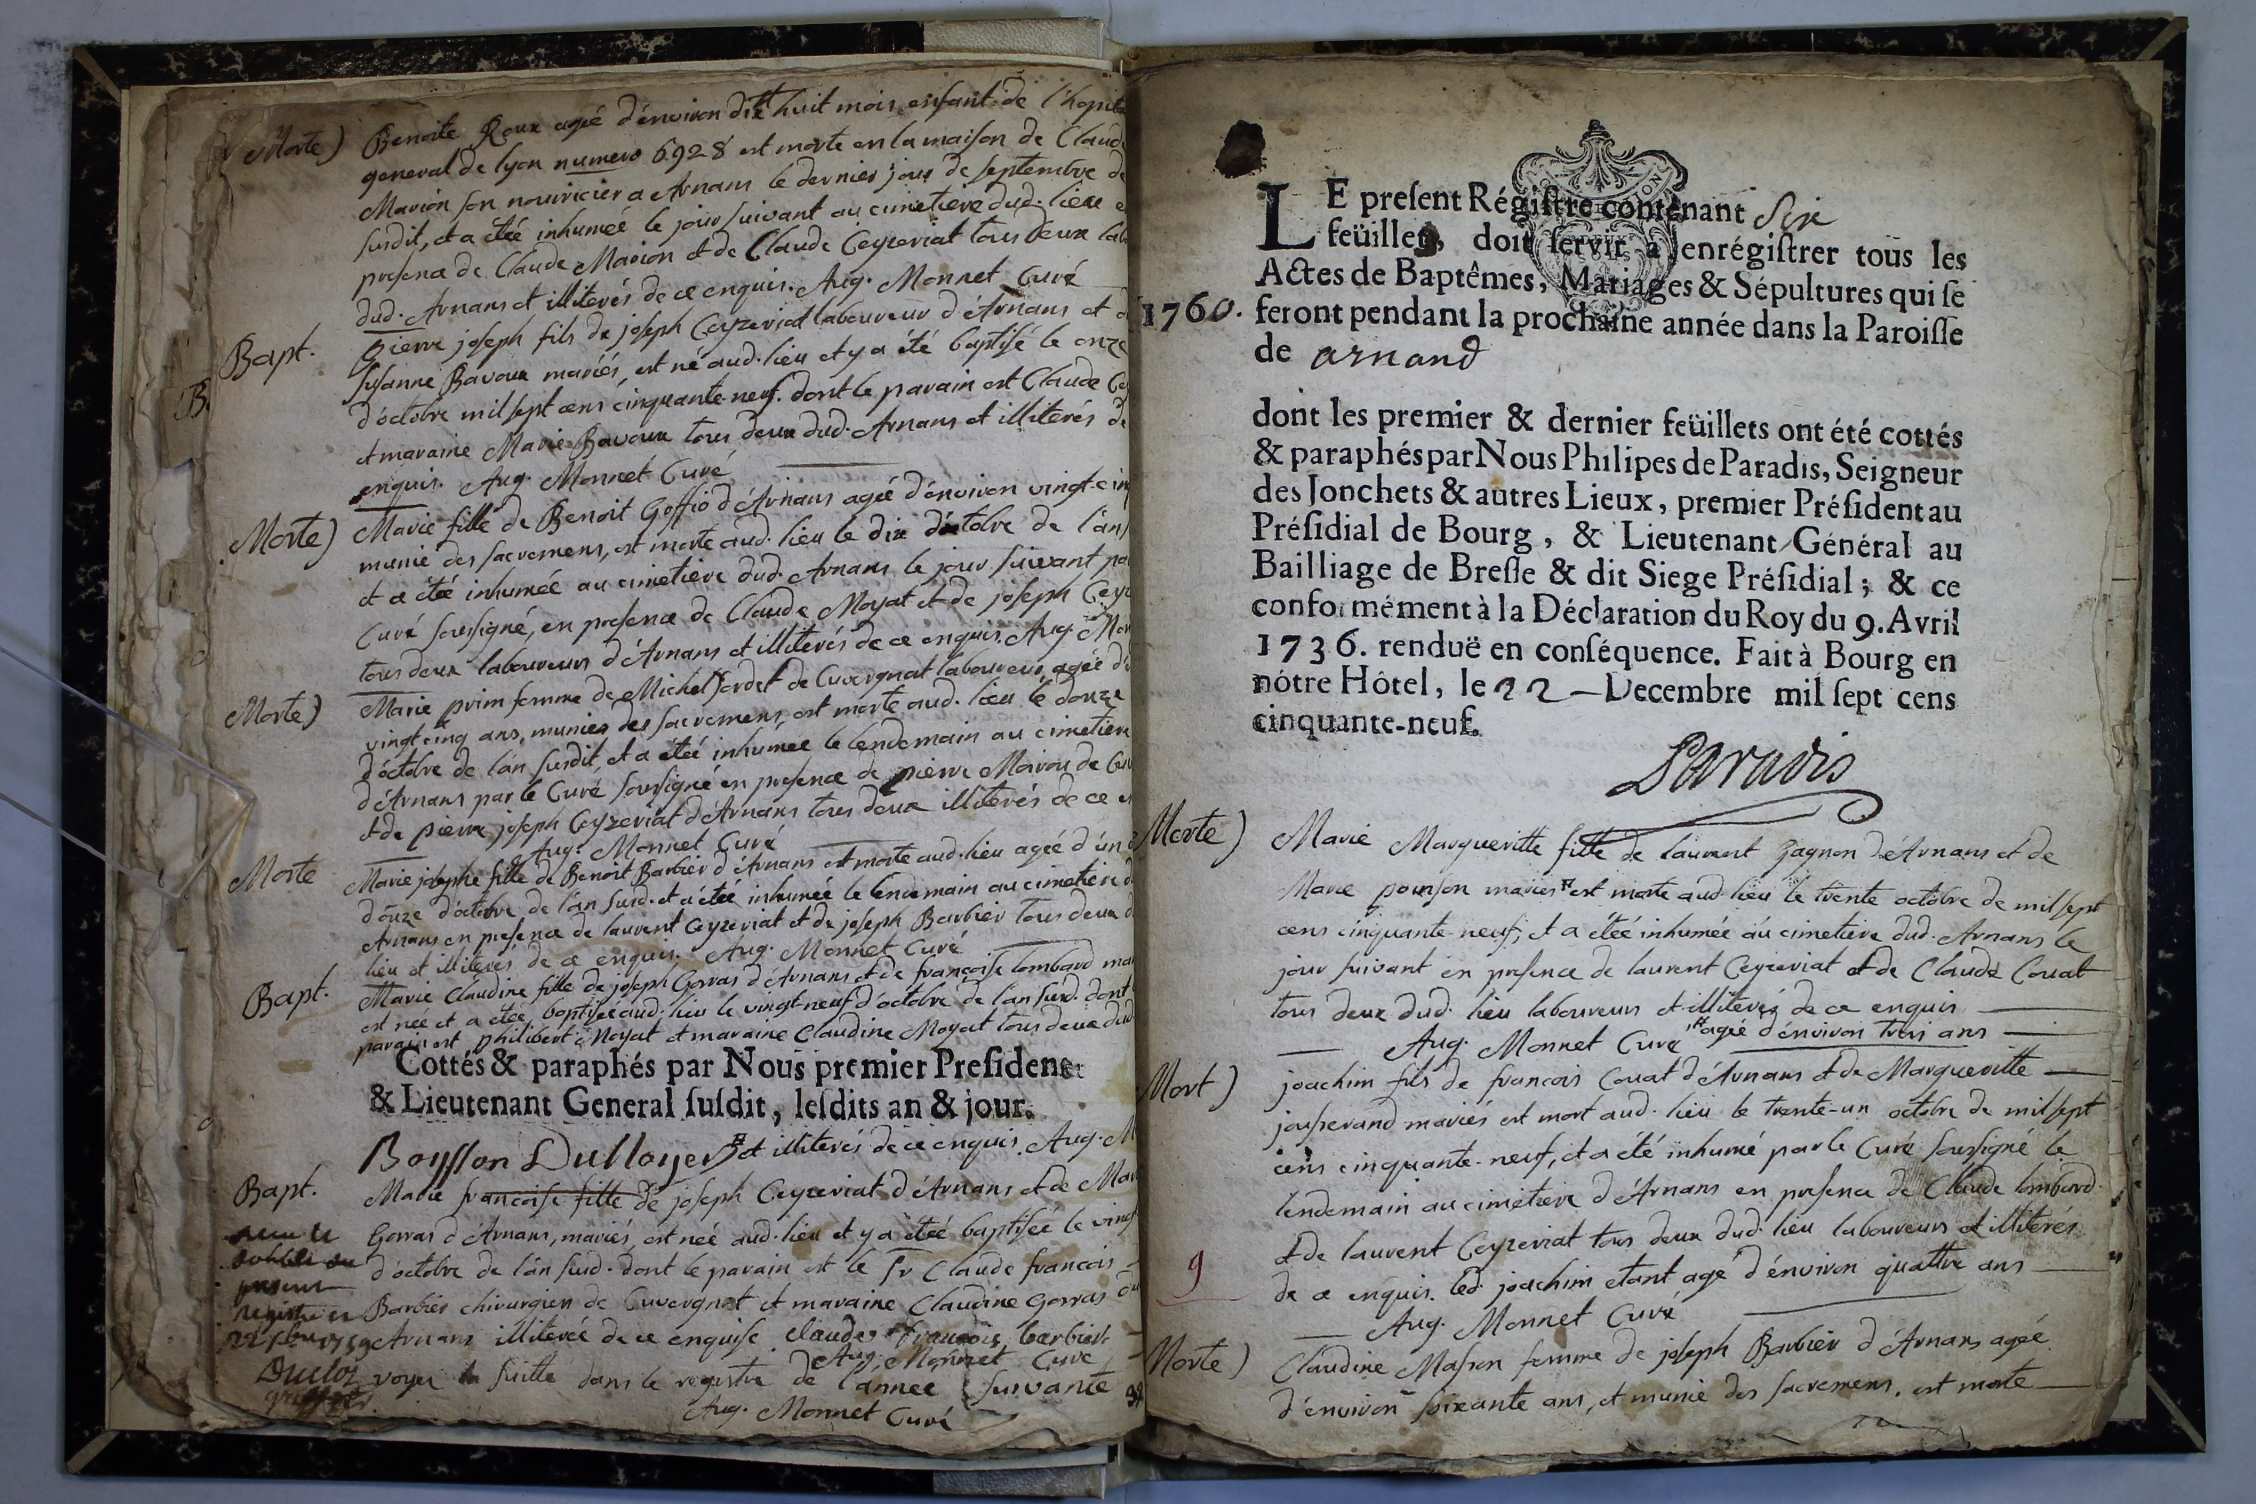 Morte) Benoite Roux agéé d'énviron dix huit mois enfant de l'hopital
general de lyon numero 6928 est morte en la maison de Claude
Marion son nourricier a Arnans le dernier jour de septembre de
susdit, et a étéé inhuméé le jour suivant au cimetiere dud. lieu e
presence de Claude Marion et de Claude Ceyzeriat tous deux lab
dud. Arnans et illiterés de ce enquis. Aug. Monnet Curé
Bapt. Pierre joseph fils de joseph Ceyzeriat laboureur d'Arnans et d
Susanne Bavoux mariés, est né aud. lieu et y a été baptisé le onze
d'óctobre mil sept cens cinquante-neuf. dont le parain est Claude Cey
et maraine Marie Bavoux tous deux dud. Arnans et illiterés de
enquis. Aug. Monnet Curé
Morte) Marie fille de Benoit Goffio d'Arnans agéé d'énviron vingt-cinq
munie des sacremens, est morte aud. lieu le dix d'óctobre de l'an s
et a étéé inhuméé au cimetiere dud. Arnans le jour suivant pa
Curé soussigné, en presence de Claude Moyat et de joseph Ceyz
tous deux laboureurs d'Arnans et illiterés de ce enquis. Aug. Mon
Morte) Marie prim femme de Michel Jordet de Cuvergnat laboureur, agéé d'é
vingt cinq ans, munies des sacremens, est morte aud. lieu le douze
d'óctobre de l'an susdit, et a étéé inhumée le lendemain au cimetiere
d'Arnans par le Curé soussigné en presence de pierre Marion de Cuv
et de pierre joseph Ceyzeriat d'Arnans tous deux illiterés de ce e
Aug. Monnet Curé
Morte Marie josephe fille de Benoit Barbier d'Arnans est morte aud. lieu agéé d'un
douze d'octobre de l'an susd. et a étéé inhuméé le lendemain au cimetiere d
Arnans en presence de laurent Ceyzeriat et de joseph Barbier tous deux d
lieu et illiterés de ce enquis. Aug. Monnet Curé
Bapt. Marie Claudine fille de joseph Gorras d'Arnans et de françoise lombard mar
est née et a étéé baptisée aud. lieu le vingt-neuf d'octobre de l'an susd. dont
parain est philibert Moyat et maraine Claudine Moyat tous deux dud
Cottés & paraphés par Nous premier President
& Lieutenant General susdit, lesdits an & jour.
et illiterés de ce enquis. Aug. M
Bapt. Marie francoise fille de joseph Ceyzeriat d'Arnans et de Mar
Gorras d'Arnans, mariés, est néé aud. lieu et y a étéé baptiséé le vingt
d'octobre de l'an susd. dont le parain est le Sr Claude francois
Barbier chirurgien de Cuvergnat et maraine Claudine Gorras du
Arnans illiteréé de ce enquise. claude francois barbier
Aug. Monnet Curé
voyez la suitte dans le registre de l'année suivante
Aug. Monnet Curé
LE present Régistre contenant six
feüillets, doit servir à enrégistrer tous les
Actes de Baptêmes, Mariages & Sépultures qui se
1760. feront pendant la prochaine année dans la Paroisse
de arnand
dont les premier & dernier feüillets ont été cottés
& paraphés par Nous Philipes de Paradis, Seigneur
des Jonchets & autres Lieux, premier Président au
Présidial de Bourg, & Lieutenant Général au
Bailliage de Bresse & dit Siege Présidial; & ce
conformément à la Déclaration du Roy du 9. Avril
1736. renduë en conséquence. Fait à Bourg en
nôtre Hôtel, le 22 Decembre mil sept cens
cinquante-neuf.
Paradis
Morte) Marie Margueritte fille de laurent Gagnon d'Arnans et de
Marie poinson mariés # est morte aud. lieu le trente octobre de mil sept
cens cinquante-neuf, et a étéé inhuméé au cimetiere dud. Arnans le
jour suivant en presence de laurent Ceyzeriat et de Claude Couat
tous deux dud. lieu laboureurs et illiterés de ce enquis
Aug. Monnet Curé # agéé d'énviron trois ans
Mort) joachim fils de francois Couat d'Arnans et de Margueritte
jousserand mariés est mort aud. lieu le trente-un octobre de mil sept
cens cinquante-neuf, et a été inhumé par le Curé soussigné le
lendemain au cimetiere d'Arnans en presence de Claude lombard
et de laurent Ceyzeriat tous deux dud. lieu laboureurs et illiterés
9 de ce enquis. led. joachim etant agé d'énviron quattre ans
Aug. Monnet Curé
Morte) Claudine Masson femme de joseph Barbier d'Arnans agéé
d'énviron soixante ans, et munie des sacremens, est morte